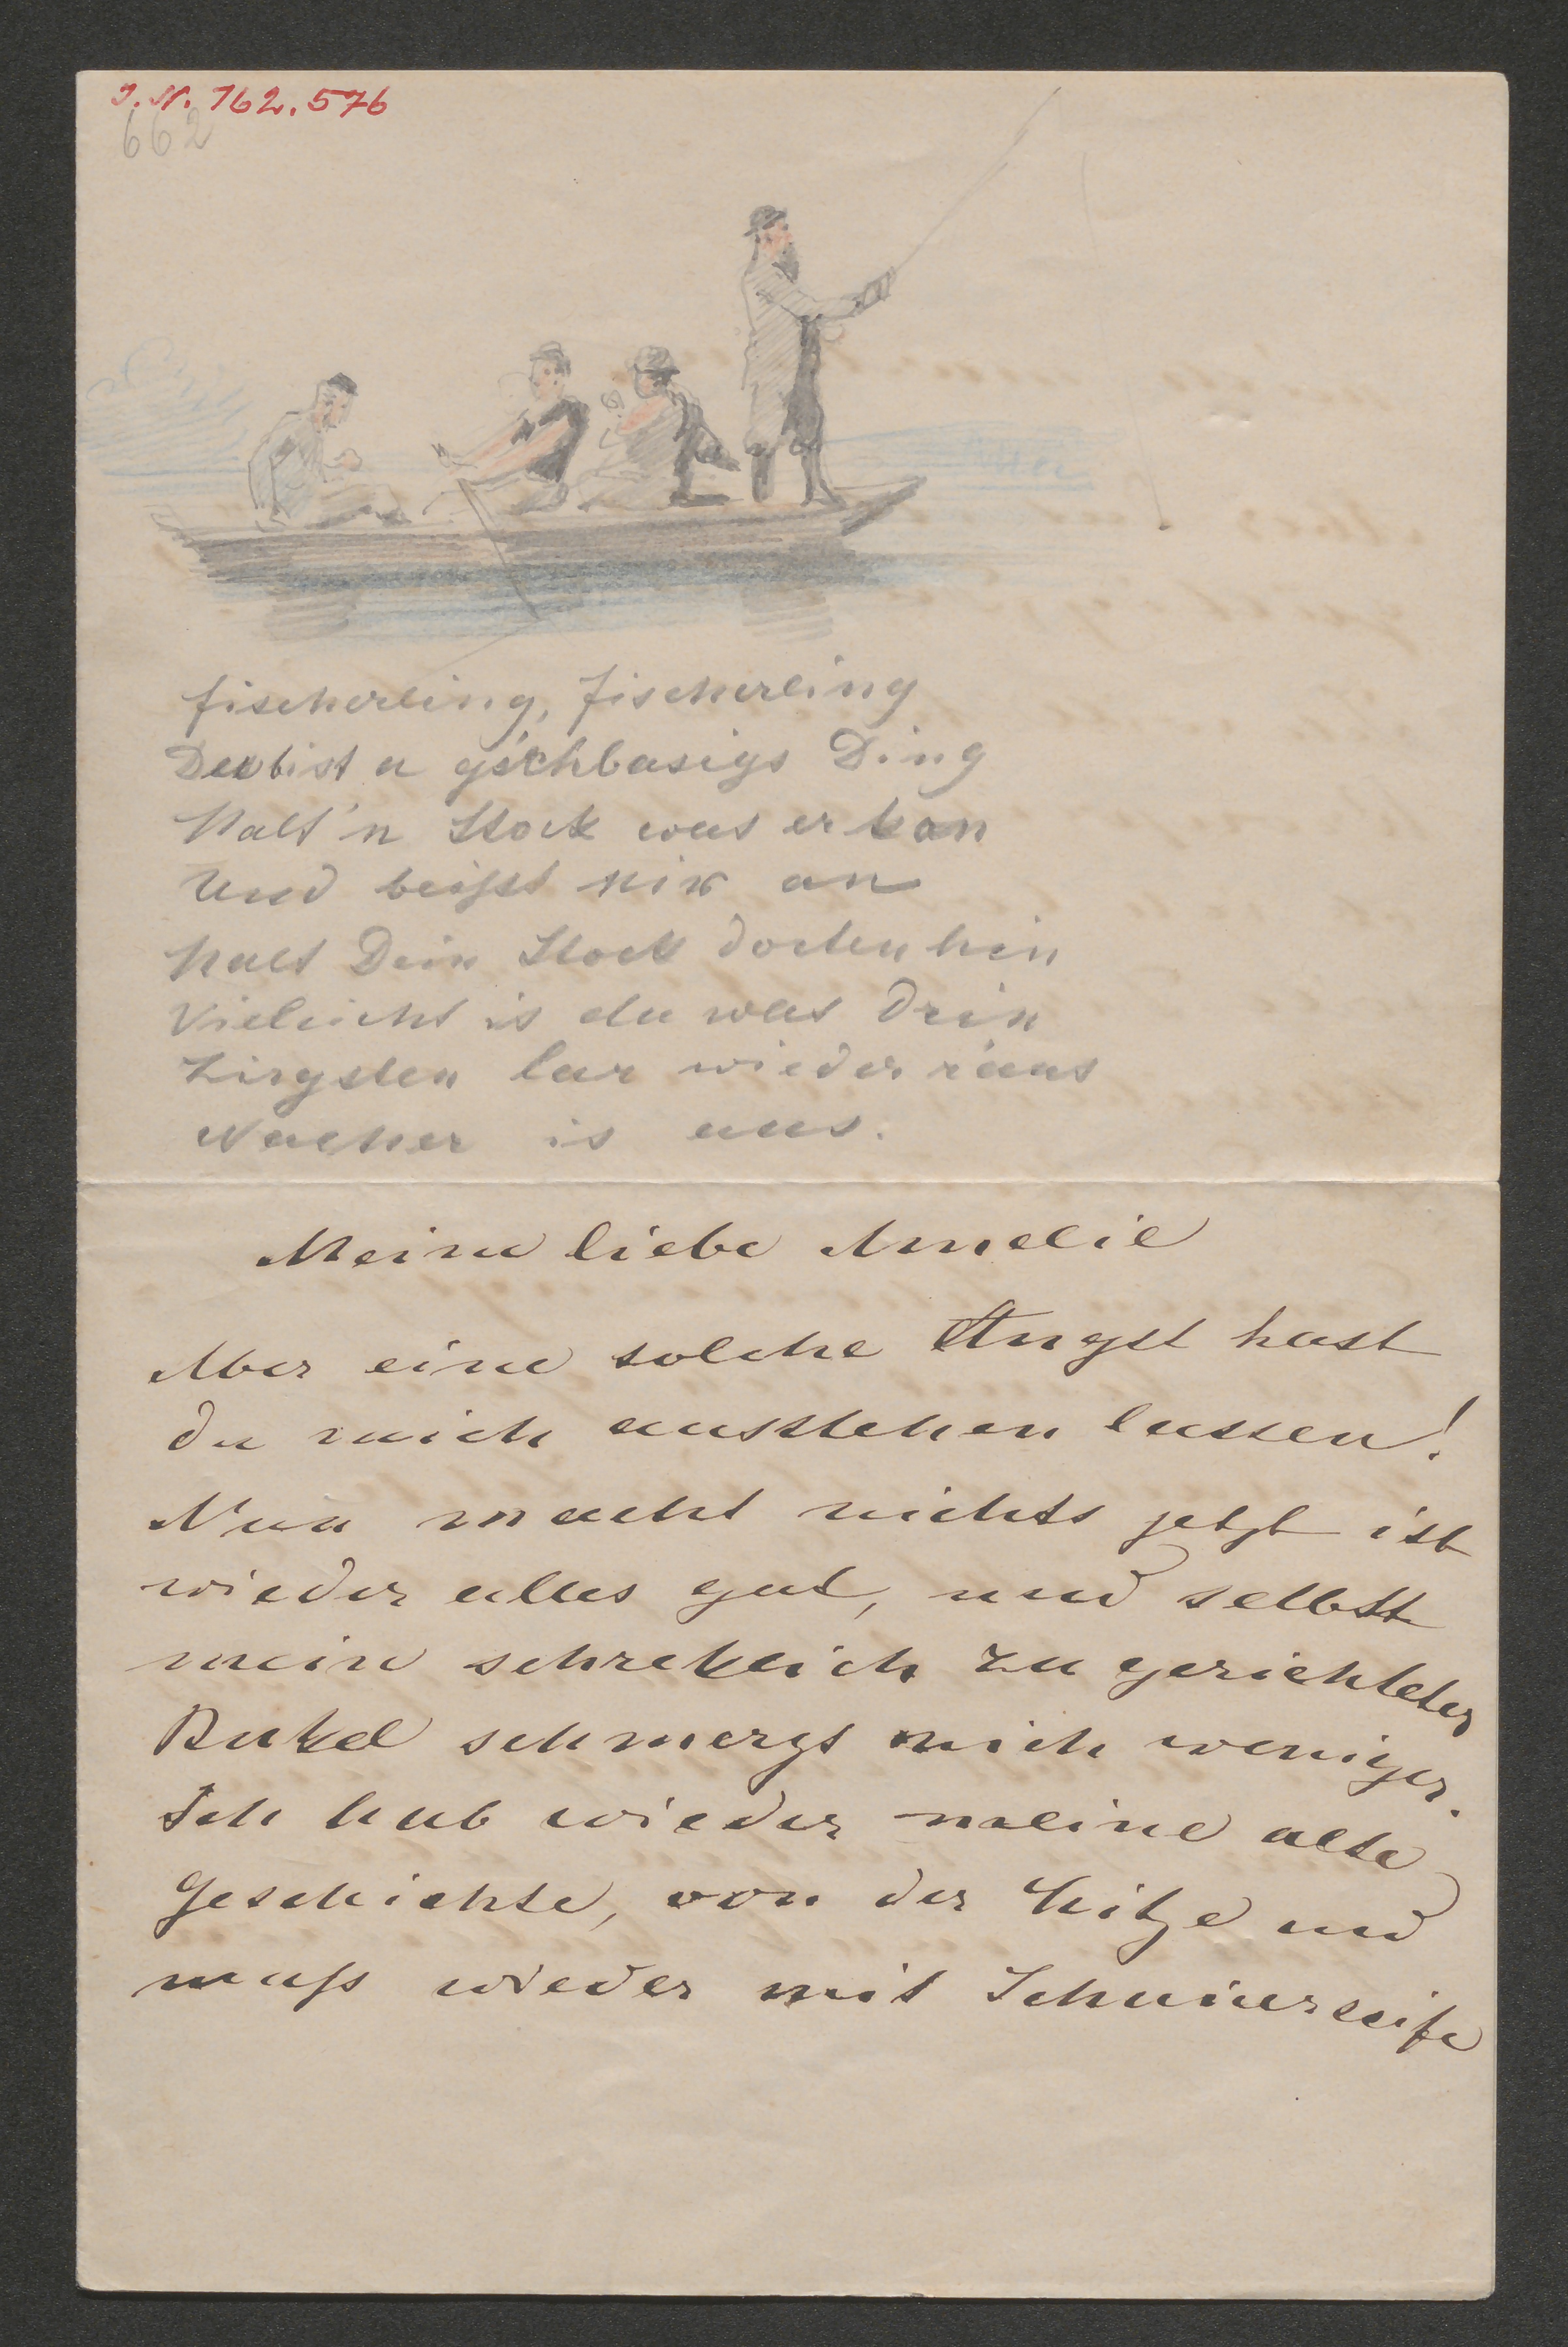 J.N. 162.576
662
fischerling, fischerling
Du bist a g'schbasigs Ding
Halt'n Stock was er kan
Und beißt nix an
Halt Dein Stock dorten hin
Vieleicht is da was drin
Ziagsten lar wieder r'aus
Nacher is aus.
Meine liebe Amelie
Aber eine solche Angst hast
du mich ausstehen lassen!
Nun macht nichts jetzt ist
wieder alles gut, und selbst
mein schreklich zu gerichteter
Bukel schmerzt mich weniger.
Ich hab wieder meine alte
Geschichte, von der Hitze und
muß wieder mit Schmierseife